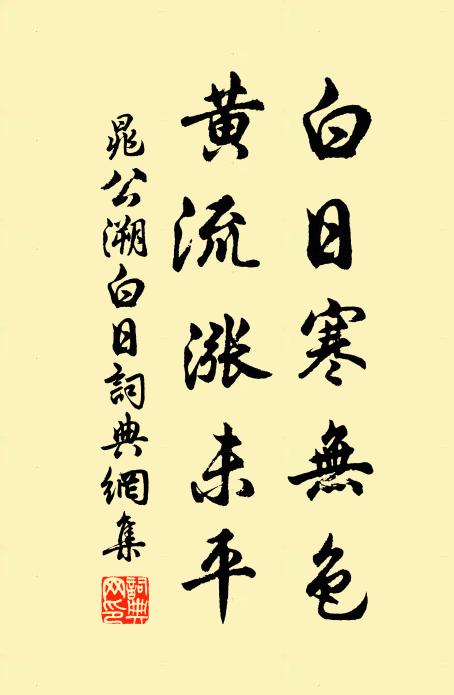 白日寒無色
黄流漲未平
晁公溯白日詞典網集
詞典网印